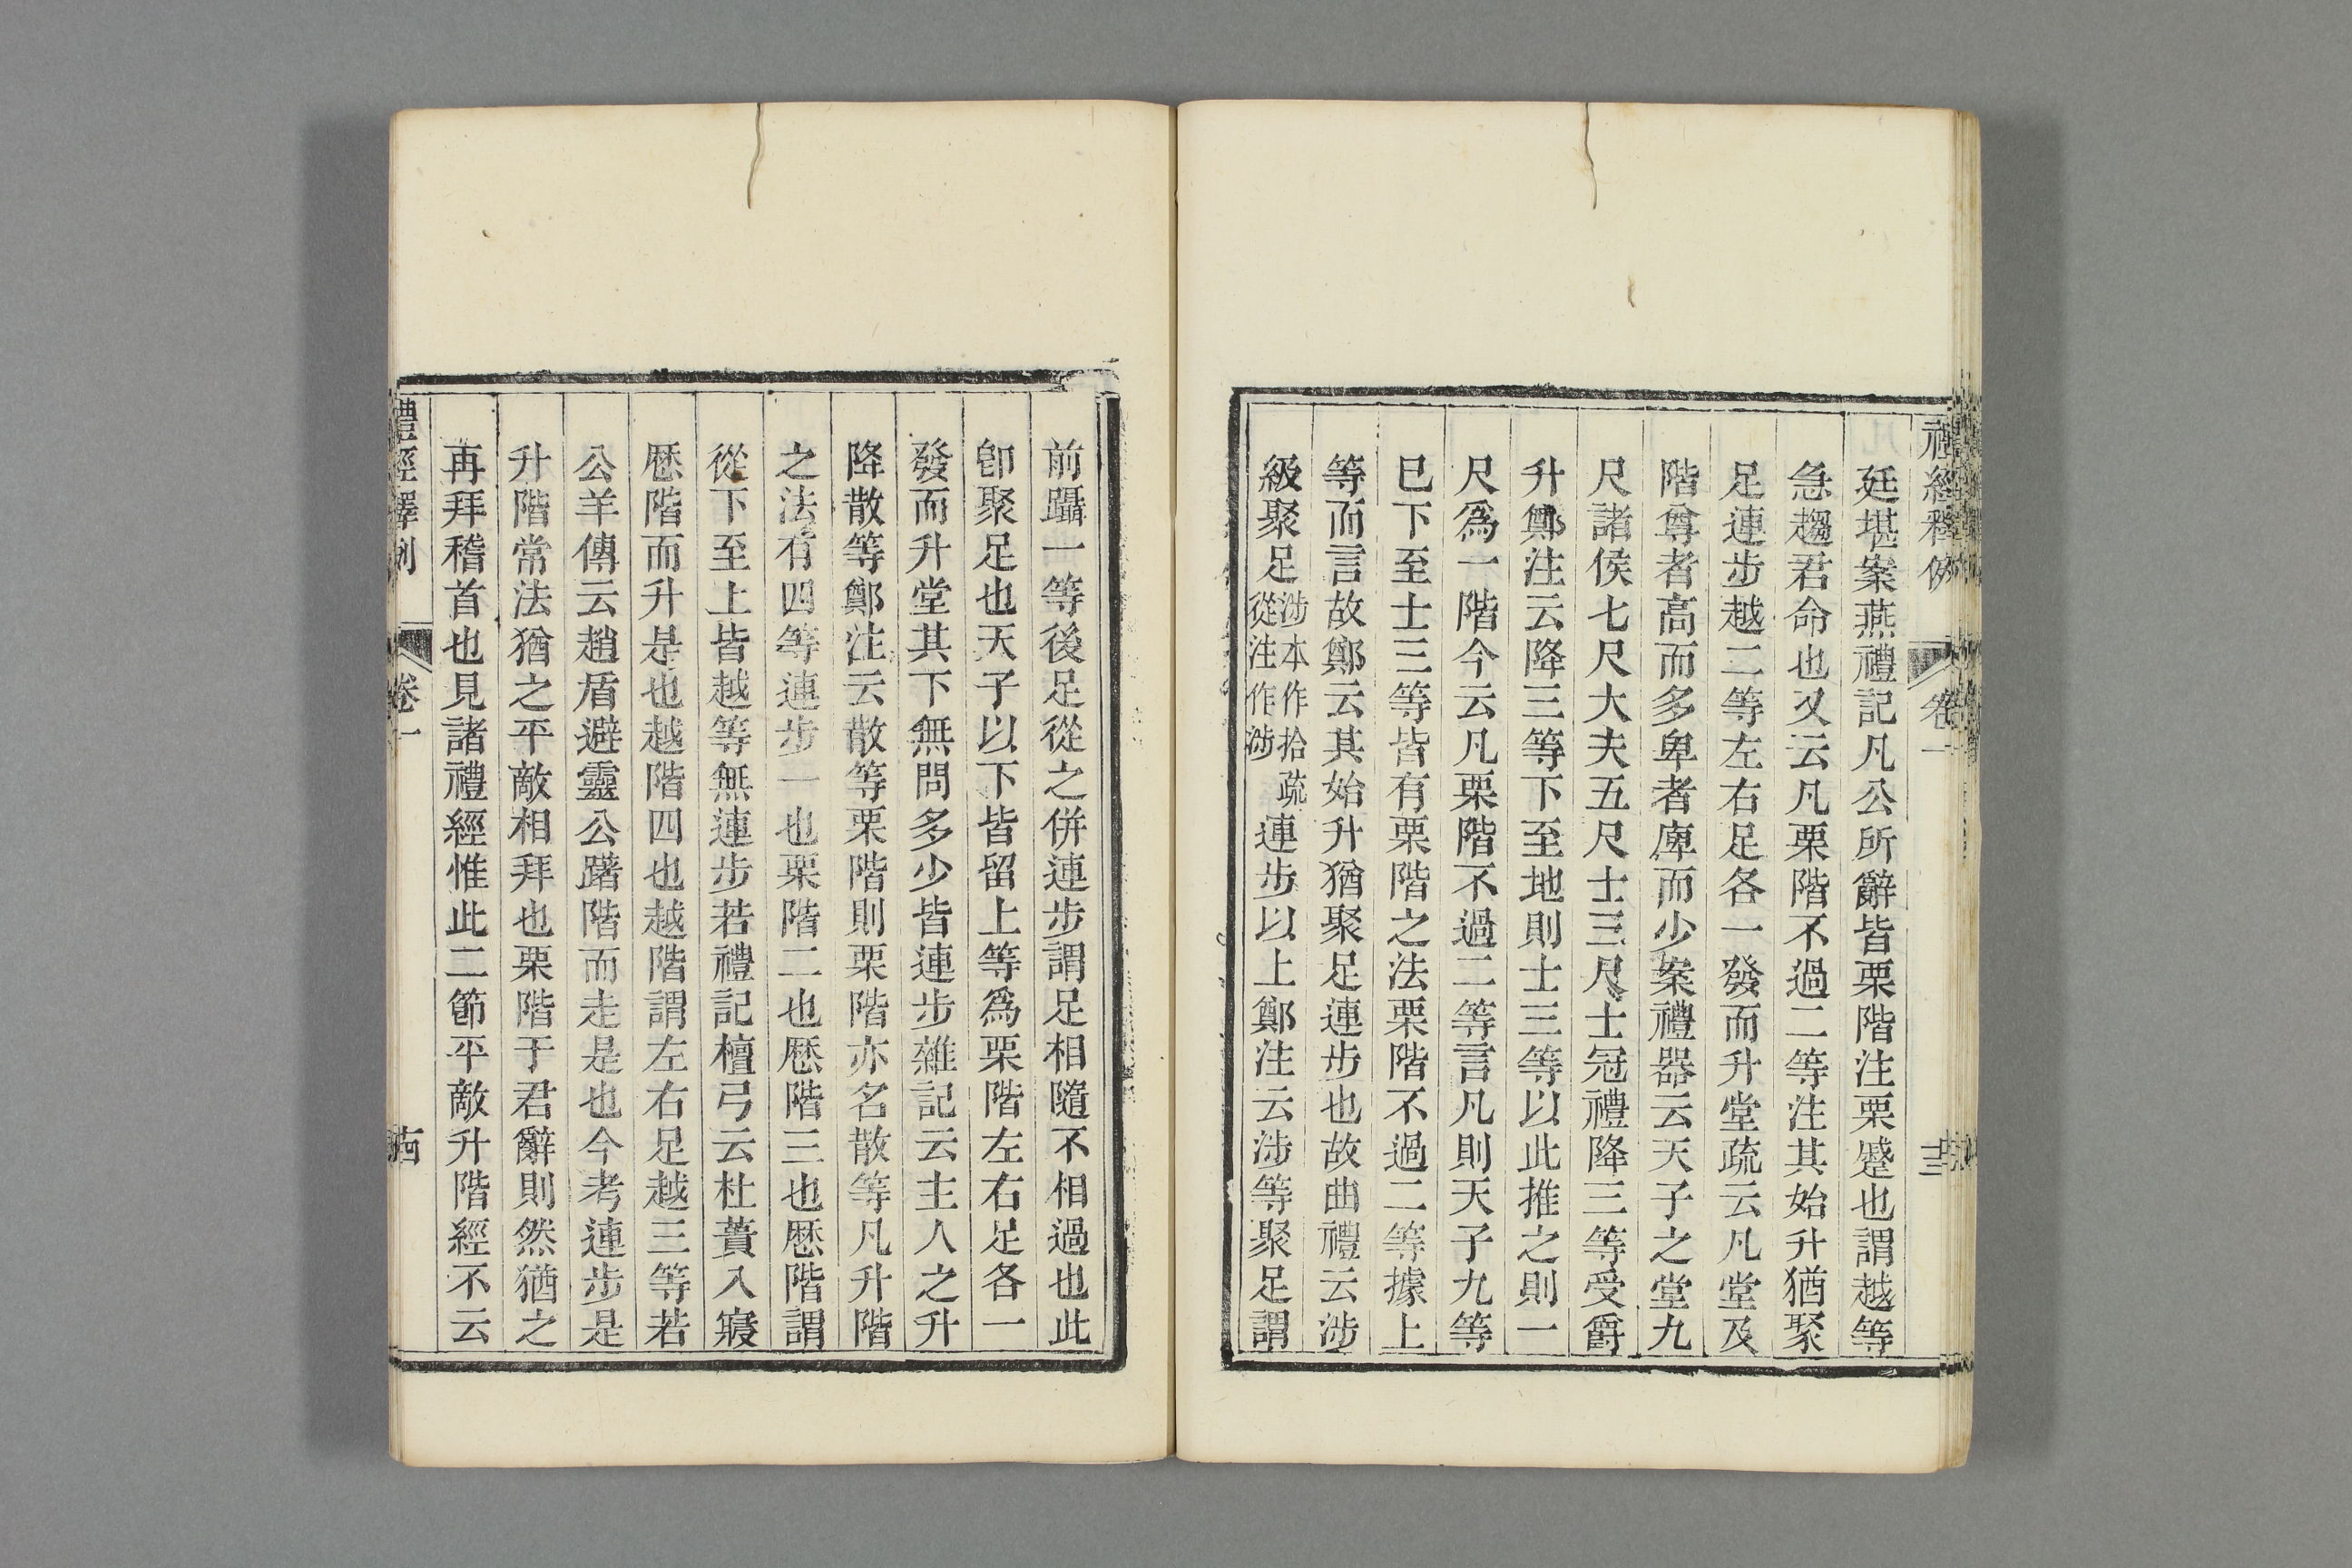 禮經釋例 卷一 十三
廷堪案燕禮記凡公所辭皆栗階注栗蹙也謂越等
急趨君命也又云凡栗階不過二等注其始升猶聚
足連步越二等左右足各一發而升堂疏云凡堂及
階尊者高而多卑者庳而少案禮器云天子之堂九
尺諸侯七尺大夫五尺士三尺士冠禮降三等受爵
升鄭注云降三等下至地則士三等以此推之則一
尺爲一階今云凡栗階不過二等言凡則天子九等
已下至士三等皆有栗階之法栗階不過二等據上
等而言故鄭云其始升猶聚足連步也故曲禮云涉
級聚足涉本作拾疏從注作涉連步以上鄭注云涉等聚足謂
前躡一等後足從之併連步謂足相隨不相過也此
卽聚足也天子以下皆留上等爲栗階左右足各一
發而升堂其下無問多少皆連步雜記云主人之升
降散等鄭注云散等栗階則栗階亦名散等凡升階
之法有四等連步一也栗階二也歷階三也歷階謂
從下至上皆越等無連步若禮記檀弓云杜蕢入寢
歷階而升是也越階四也越階謂左右足越三等若
公羊傳云趙盾避靈公躇階而走是也今考連步是
升階常法猶之平敵相拜也栗階于君辭則然猶之
再拜稽首也見諸禮經惟此二節平敵升階經不云
禮經釋例 卷一 十四